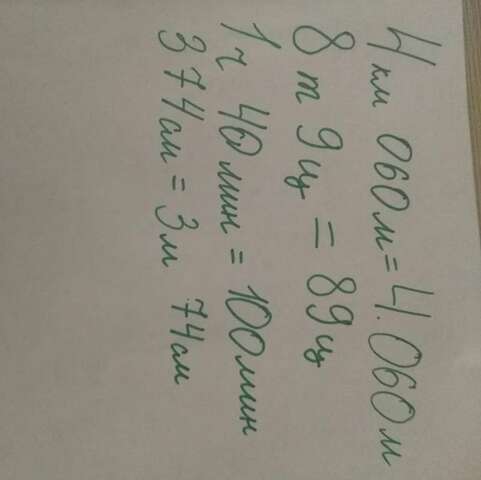 4 км 060 м = 4.060 м
8 т 9 ц = 89 ц
1 ч 40 мин = 100 мин
374 см = 3 м 74 см